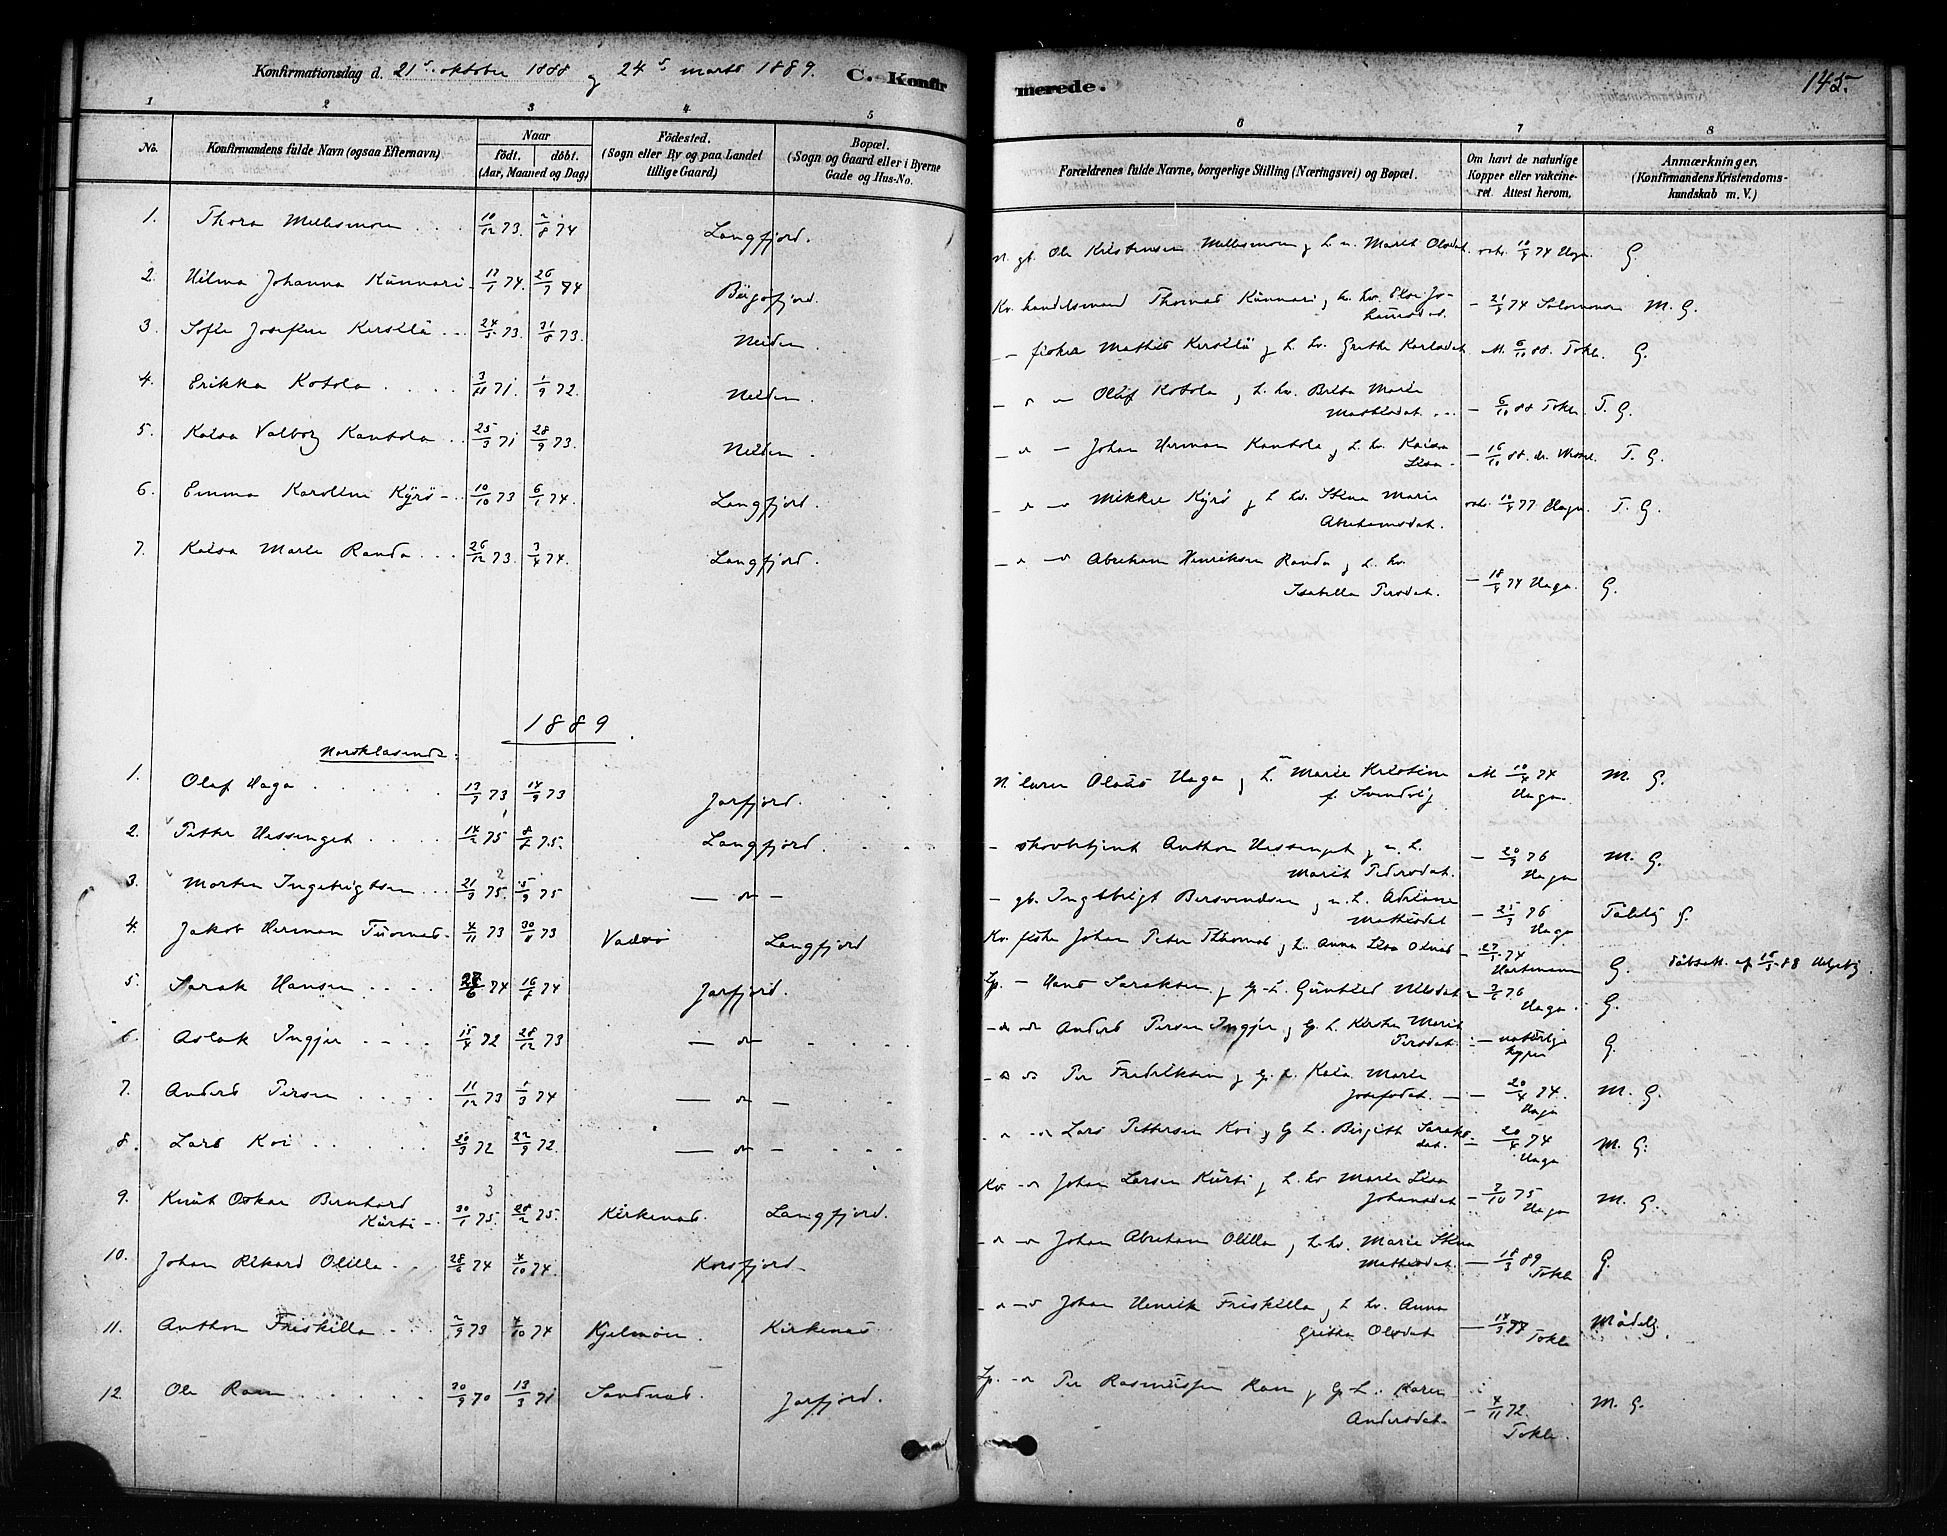 Konfirmationsdag d. 21s. oktober 1888 og 24s. marts 1889. C. Konfir
merede. 145.
1 2 3 4 5 6 7 8
No. Konfirmandens fulde Navn (ogsaa Efternavn) Naar
födt. döbt.
(Aar, Maaned og Dag)
Födested.
(Sogn eller By og paa Landet
tillige Gaard)
Bopæl.
(Sogn og Gaard eller i Byerne
Gade og Hus-No.
Forældrenes fulde Navne, borgerlige Stilling (Næringsvei) og Bopæl.
Om havt de naturlige
Kopper eller vakcine-
ret. Attest herom.
Anmærkninger.
(Konfirmandens Kristendoms-
kundskab m. V.)
1. Thora 10/12 73. 2/8 74 Langfjord. N. gb. Ole Kristensen L. n. Marit Olsdat. 10/9 74 Haga. G.
2. Hilma Johanna Kunnari 74. 74 Bugøfjord. Kv. handelsmand Thomas Kunnari, L. kv. 21/9 74 Salomonsen M. G.
3. Sofie Josefine 24/5 73. 31/8 73. Neiden. – fisker Mathis L. kv. Grethe Karlsdat. att. 6/10 88. Tokle. G.
4. Erikka Kotola 3/11 71. 1/9 72. Neiden. Oluf Kotola, L. kv. Brita Marie
Mathisdat. – 6/10 88 Tokle. T. G.
5. Kaisa Valborg Kantola 25/3 71 28/9 73. Neiden. Johan Herman Kantola, L. kv. Kaisa
Lisa. – 16/10 88. T. G.
6. Emma Karoline Kyrö 10/10 73 6/1 74. Langfjord. Mikkel Kyrö, L. kv. Stina Marie
Abrahamsdat. 10/9 77 Haga. T. G.
7. Kaisa Marie Randa 26/12 73. 3/4 74. Langfjord. Abraham Henriksen Randa, L. kv.
Isabella Persdat. – 18/9 74 Haga. G.
1889
Norsklæsende.
1. Olaf Haga 73 14/9 73 Jarfjord. N. lærer Olaus Haga, L. Marie Kristine
f. Svendvig att 10/4 74
Haga. M. G.
2. Petter Hessinget 14/2 75 75. Langfjord. – skovbetjent Anthon Hessinget, n. L.
Marit Pedersdat. – 20/9 76
Haga M. G.
3. Morten Ingebrigtsen 21/3 75. 5/9 75 – do – – gb. Ingebrigt Bersvendsen, n. L. Adriane
Mathisdat – 25/9 76
Haga Tålelig G.
4. Jakob Herman Tuomas 4/11 73 30/11 73 Vadsø Langfjord Kv. fisker Johan Peter Thomas, L. Anna Lisa Olsdat – 27/1 74
Hartmann G. Dåbsatt. af 15/3 88
5. Sarak Hansen 74 74 Jarfjord. Lp. – Hans Saraksen, L. Gunhild Nilsdat – 76
Haga. G.
6. Aslak Ingjer 15/4 72 28/12 73 – do – Anders Persen Ingjer, L. Kirsten Marit
Persdat. – naturlige
kopper G.
7. Anders Persen 11/12 73 1/3 74 – do – Per Fredriksen, L. Kaia Marie
Josefsdat. – 20/4 74.
Haga M. G.
8. Lars Koi 20/3 72 22/9 72. – do – Lars Pettersen Koi, L. Birgitte Saraks-
dat. – 20/4 74
Haga M. G.
9. Knut Oskar Bernhard
Kurti 30/1 75. 28/2 75. Kirkenes. Langfjord. Kv. Johan Larsen Kurti, L. kv Marie Lisa
Johansdat – 3/10 75
Haga M. G.
10. Johan Rikard Olilla 28/6 74 4/10 74. Korsfjord. Johan Abraham Olilla, L. kv. Marie Stina
Mathisdat. – 18/3 89
Tokle G.
11. Anthon Friskilla 2/9 73 4/10 74 Kjelmøen. Kirkenæs Johan Henrik Friskilla, L. kv. Anna
Gretha Olsdat Tokle Mådelig.
12. Ole Ram 30/9 70 13/3 71 Sandnæs. Jarfjord. Lp. Per Rasmussen Ram, L. Karen
Andersdat. – 4/11 72.
Tokle. M. G.